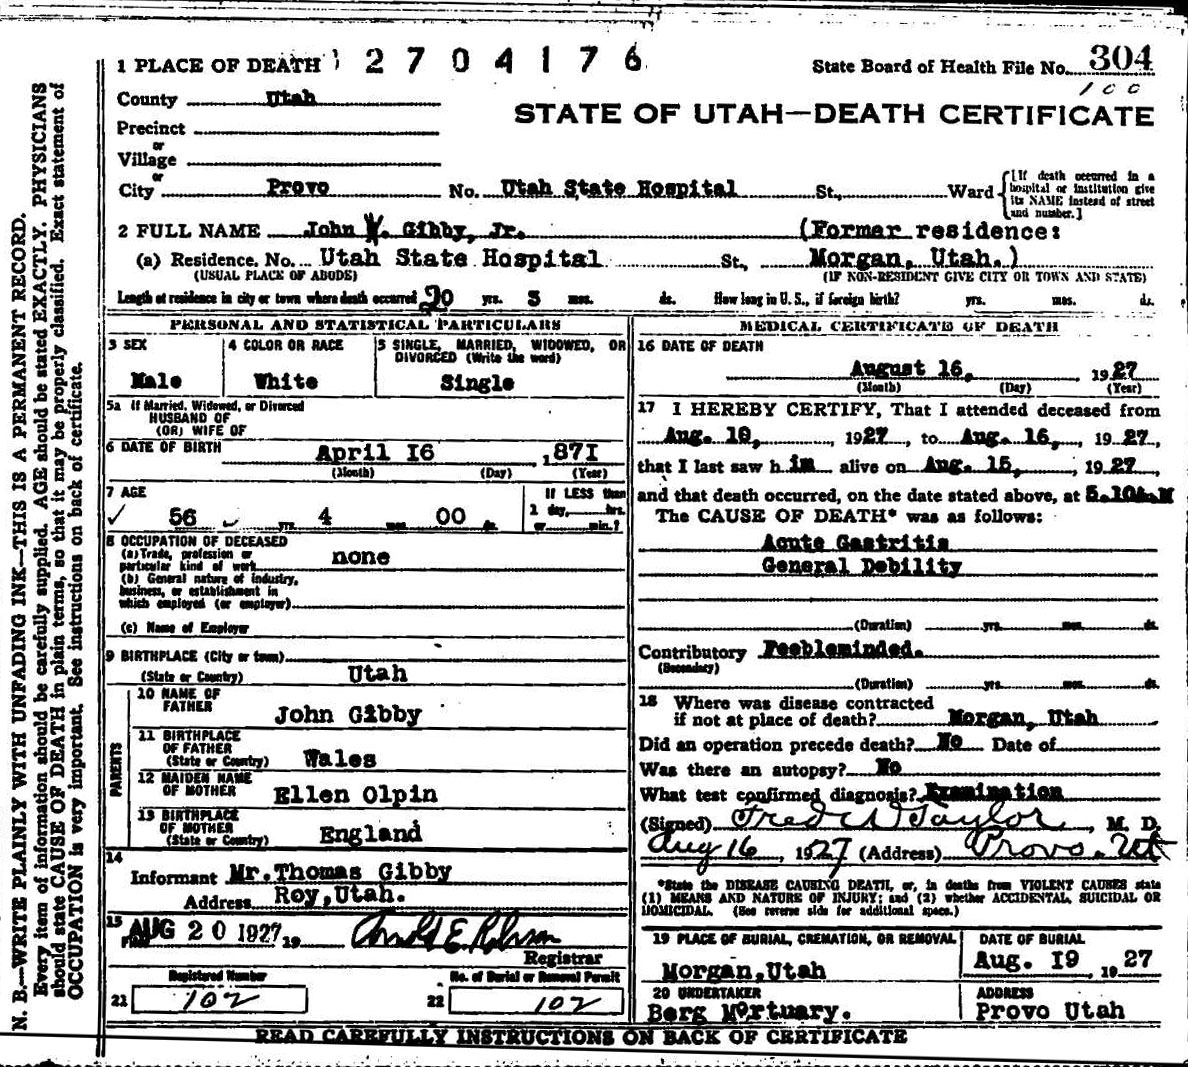 1 PLACE OF DEATH 2704176
State Board of Health File No. 304
100
County Utah
STATE OF UTAH—DEATH CERTIFICATE
Precinct
or
Village
or
City Provo No. Utah State Hospital St., Ward
[If death occurred in a hospital or institution give its NAME instead of street and number.]
2 FULL NAME John W. Gibby, Jr. (Former residence:
(a) Residence. No. Utah State Hospital St., Morgan, Utah.)
(USUAL PLACE OF ABODE) (IF NON-RESIDENT GIVE CITY OR TOWN AND STATE)
Length of residence in city or town where death occurred 20 yrs. 3 mos. ds. How long in U. S., if foreign birth? yrs. mos. ds.
PERSONAL AND STATISTICAL PARTICULARS
3 SEX
Male
4 COLOR OR RACE
White
5 SINGLE, MARRIED, WIDOWED, OR
DIVORCED (Write the word)
Single
5a If Married, Widowed, or Divorced
HUSBAND OF
(OR) WIFE OF
6 DATE OF BIRTH April 16 , 1871
(Month) (Day) (Year)
7 AGE
56 yrs. 4 mos. 00 ds.
If LESS than
1 day, hrs.
or min.?
8 OCCUPATION OF DECEASED
(a) Trade, profession or
particular kind of work none
(b) General nature of industry,
business, or establishment in
which employed (or employer)
(c) Name of Employer
9 BIRTHPLACE (City or town)
(State or Country) Utah
PARENTS
10 NAME OF
FATHER John Gibby
11 BIRTHPLACE
OF FATHER
(State or Country) Wales
12 MAIDEN NAME
OF MOTHER Ellen Olpin
13 BIRTHPLACE
OF MOTHER
(State or Country) England
14
Informant Mr. Thomas Gibby
Address Roy, Utah.
15
Filed AUG 20 1927 19
Registrar
Registered Number
21 102
No. of Burial or Removal Permit
22 102
MEDICAL CERTIFICATE OF DEATH
16 DATE OF DEATH
August 16, 1927
(Month) (Day) (Year)
17 I HEREBY CERTIFY, That I attended deceased from
Aug. 10, 1927, to Aug. 16, 1927,
that I last saw him alive on Aug. 15, 1927,
and that death occurred, on the date stated above, at 5.10A.M
The CAUSE OF DEATH* was as follows:
Acute Gastritis
General Debility
(Duration) yrs. mos. ds.
Contributory Feebleminded.
(Secondary)
(Duration) yrs. mos. ds.
18 Where was disease contracted
if not at place of death? Morgan, Utah
Did an operation precede death? No Date of
Was there an autopsy? No
What test confirmed diagnosis? Examination
(Signed) Fred W Taylor, M. D.
Aug 16, 1927 (Address) Provo. Ut
*State the DISEASE CAUSING DEATH, or, in deaths from VIOLENT CAUSES state
(1) MEANS AND NATURE OF INJURY; and (2) whether ACCIDENTAL, SUICIDAL OR
HOMICIDAL. (See reverse side for additional space.)
19 PLACE OF BURIAL, CREMATION, OR REMOVAL
Morgan, Utah
DATE OF BURIAL
Aug. 19 1927
20 UNDERTAKER
Berg Mortuary.
ADDRESS
Provo Utah
READ CAREFULLY INSTRUCTIONS ON BACK OF CERTIFICATE
N. B.—WRITE PLAINLY WITH UNFADING INK—THIS IS A PERMANENT RECORD.
Every item of information should be carefully supplied. AGE should be stated EXACTLY. PHYSICIANS
should state CAUSE OF DEATH in plain terms, so that it may be properly classified. Exact statement of
OCCUPATION is very important. See instructions on back of certificate.